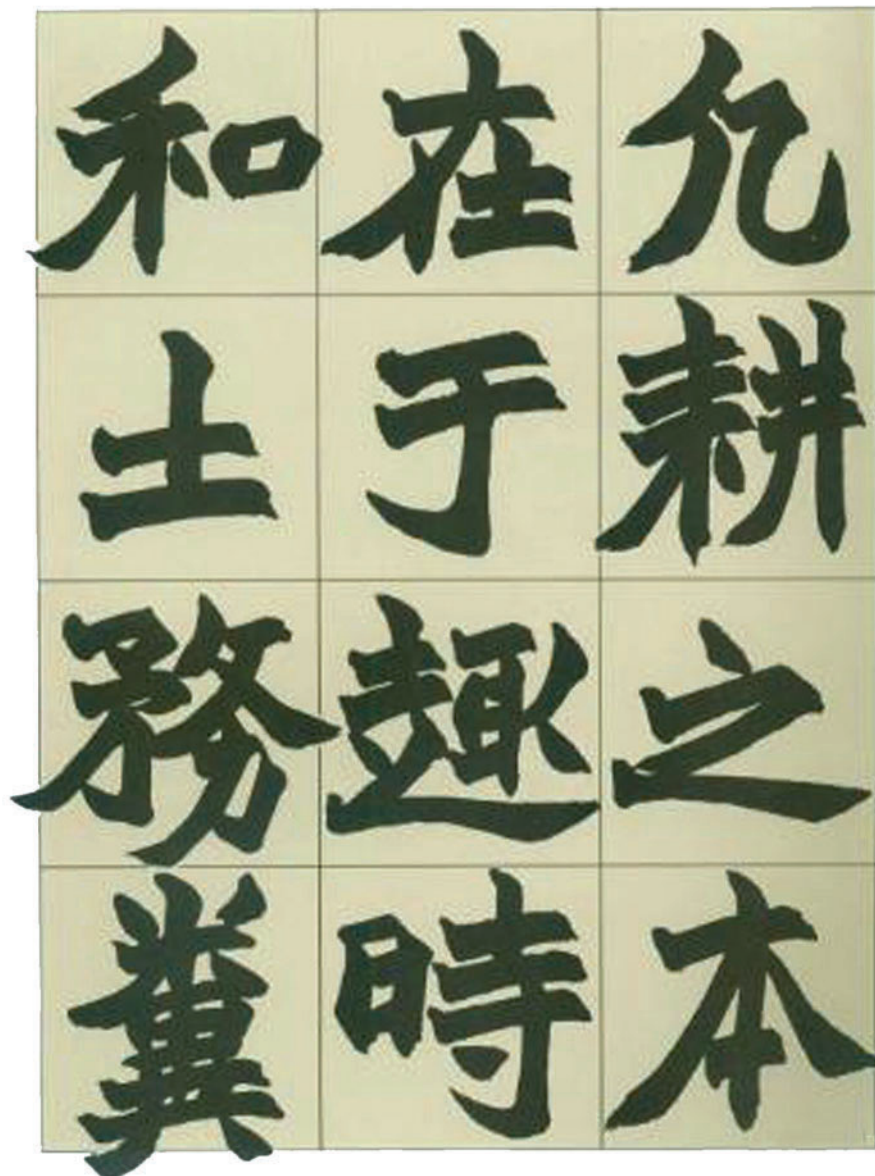 凡耕之本
在于趣時
和土務糞